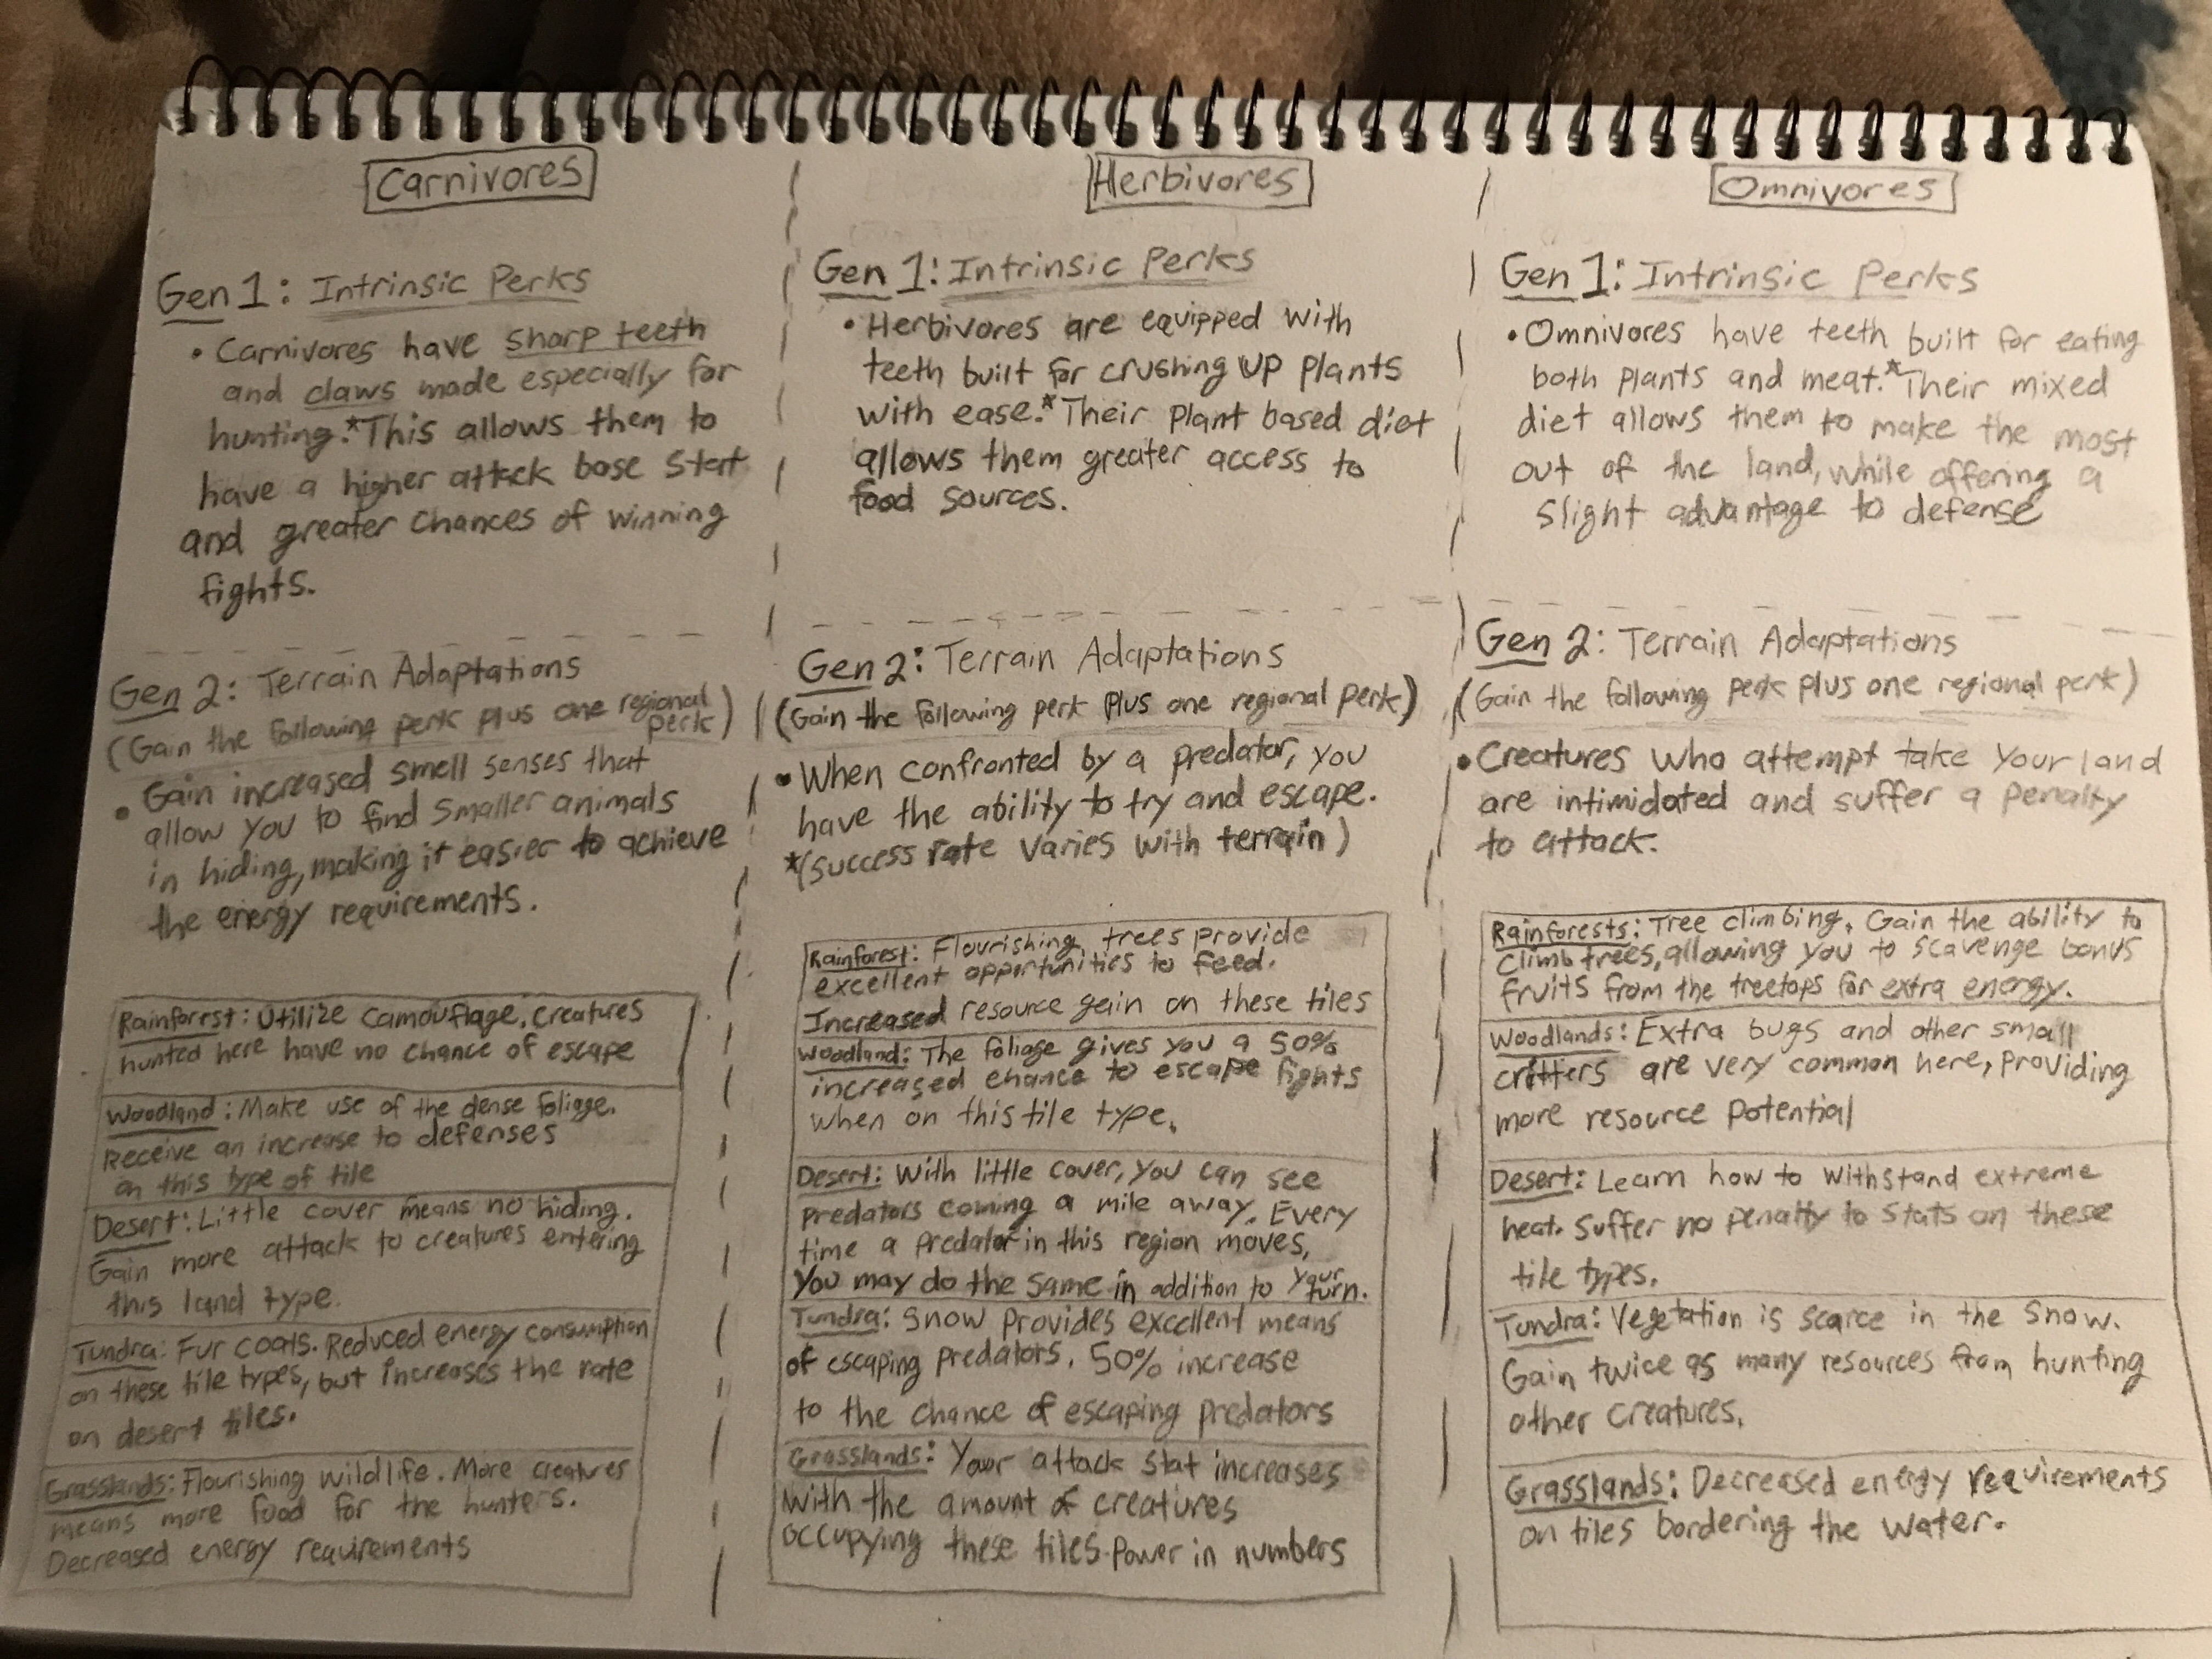 Carnivores
Gen 1: Intrinsic Perks
• Carnivores have sharp teeth
and claws made especially for
hunting.*This allows them to
have a higher attack base start
and greater chances of winning
fights.
Gen 2: Terrain Adaptations
(Gain the following perk plus one regional
perk)
• Gain increased smell senses that
allow you to find smaller animals
in hiding, making it easier to achieve
the energy requirements.
Rainforest: Utilize camouflage. creatures
hunted here have no chance of escape
Woodland: Make use of the dense foliage.
Receive an increase to defenses
on this type of tile
Desert: Little cover means no hiding.
Gain more attack to creatures entering
this land type.
Tundra: Fur coats. Reduced energy consumption
on these tile types, but increases the rate
on desert tiles.
Grasslands: Flourishing wildlife. More creatures
means more food for the hunters.
Decreased energy requirements
Herbivores
Gen 1: Intrinsic Perks
• Herbivores are equipped with
teeth built for crushing up plants
with ease.* Their plant based diet
allows them greater access to
food sources.
Gen 2: Terrain Adaptations
(Gain the following perk plus one regional perk)
• When confronted by a predator, you
have the ability to try and escape.
*(success rate varies with terrain)
Rainforest: Flourishing trees provide
excellent opportunities to feed.
Increased resource gain on these tiles
Woodland: The foliage gives you a 50%
increased chance to escape fights
when on this tile type.
Desert: With little cover, you can see
predators coming a mile away. Every
time a predator in this region moves,
you may do the same in addition to your
turn.
Tundra: Snow provides excellent means
of escaping predators. 50% increase
to the chance of escaping predators
Grasslands: Your attack stat increases
with the amount of creatures
occupying these tiles. Power in numbers
Omnivores
Gen 1: Intrinsic Perks
• Omnivores have teeth built for eating
both plants and meat.*Their mixed
diet allows them to make the most
out of the land, while offering a
slight advantage to defense
Gen 2: Terrain Adaptations
(Gain the following perk plus one regional perk)
• Creatures who attempt take your land
are intimidated and suffer a penalty
to attack.
Rainforests: Tree climbing. Gain the ability to
climb trees, allowing you to scavenge bonus
fruits from the treetops for extra energy.
Woodlands: Extra bugs and other small
critters are very common here, providing
more resource potential
Desert: Learn how to withstand extreme
heat. Suffer no penalty to stats on these
tile types.
Tundra: Vegetation is scarce in the snow.
Gain twice as many resources from hunting
other creatures.
Grasslands: Decreased energy requirements
on tiles bordering the water.